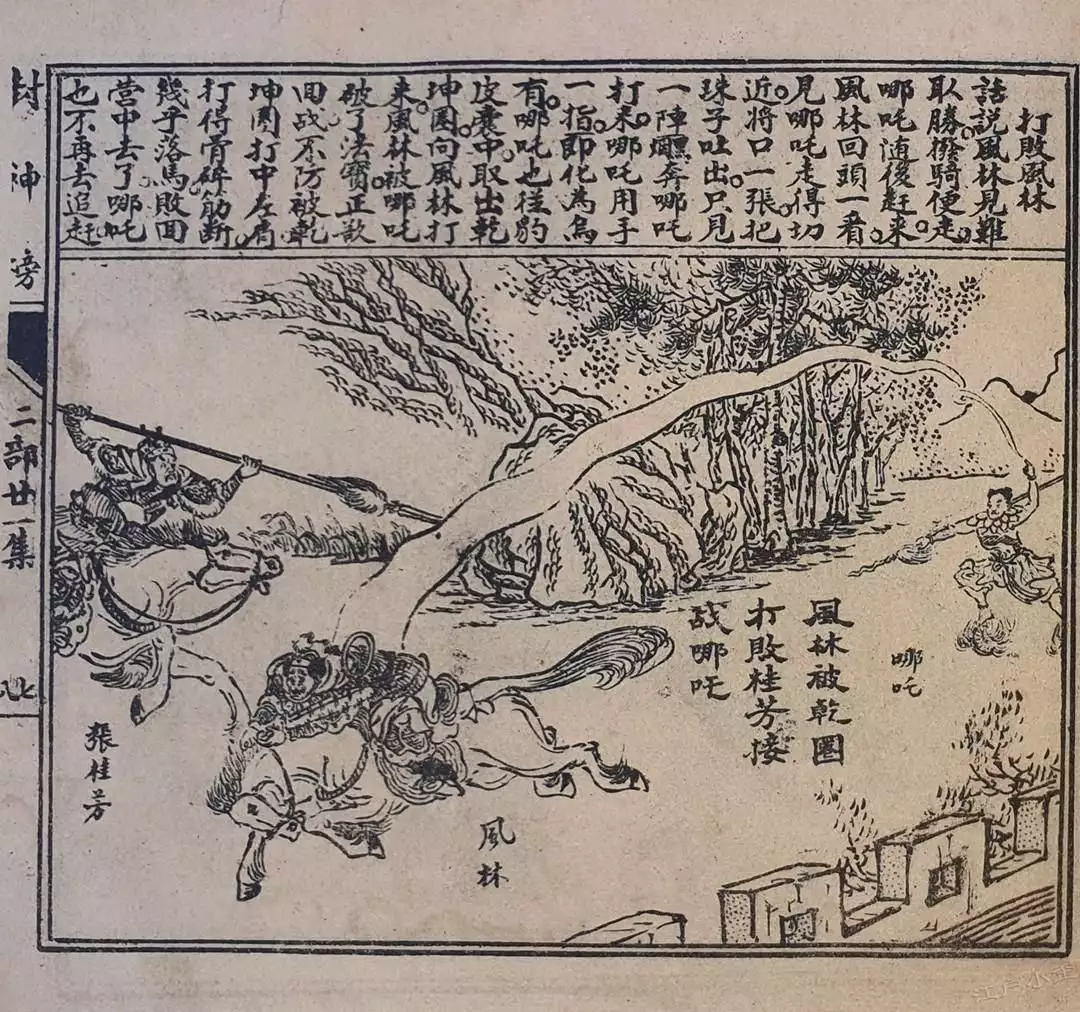 打敗風林
話説風林見難
取勝。撥騎便走。
哪吒随後赶来。
風林回頭一看。
見哪吒走得切
近。将口一張把
珠子吐出。只見
一陣奔哪吒
打来。哪吒用手
一指即化為烏
有。哪吒也往豹
皮囊中取出乾
坤圈。向風林打
来。風林被哪吒
破了法寶。正欲
回战不防被乾
坤圈打中左肩
打得骨碎筋断。
幾乎落馬敗回
營中去了哪吒
也不再去追赶
風林被乾圈
打敗桂芳接
战哪吒
哪吒
風林
張桂芳
封神旁
二部廿一集